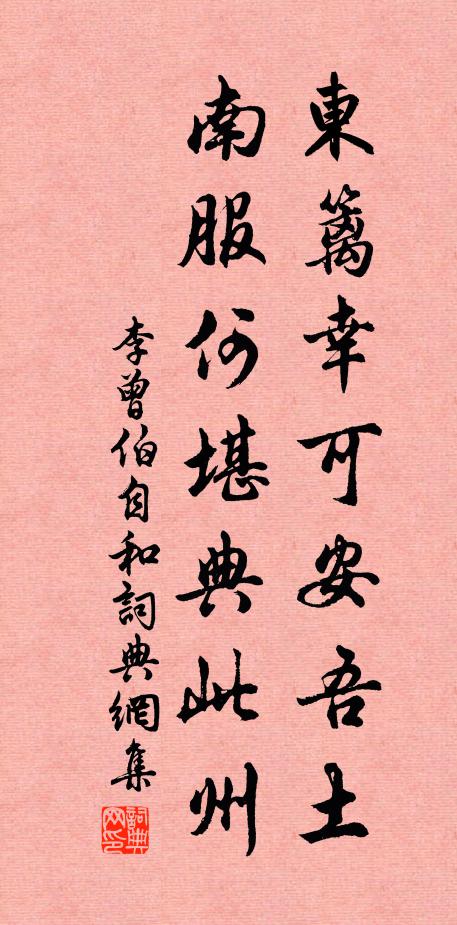 東篱幸可安吾土
南服何堪典此州
李曾伯自和詞典網集
詞典网印